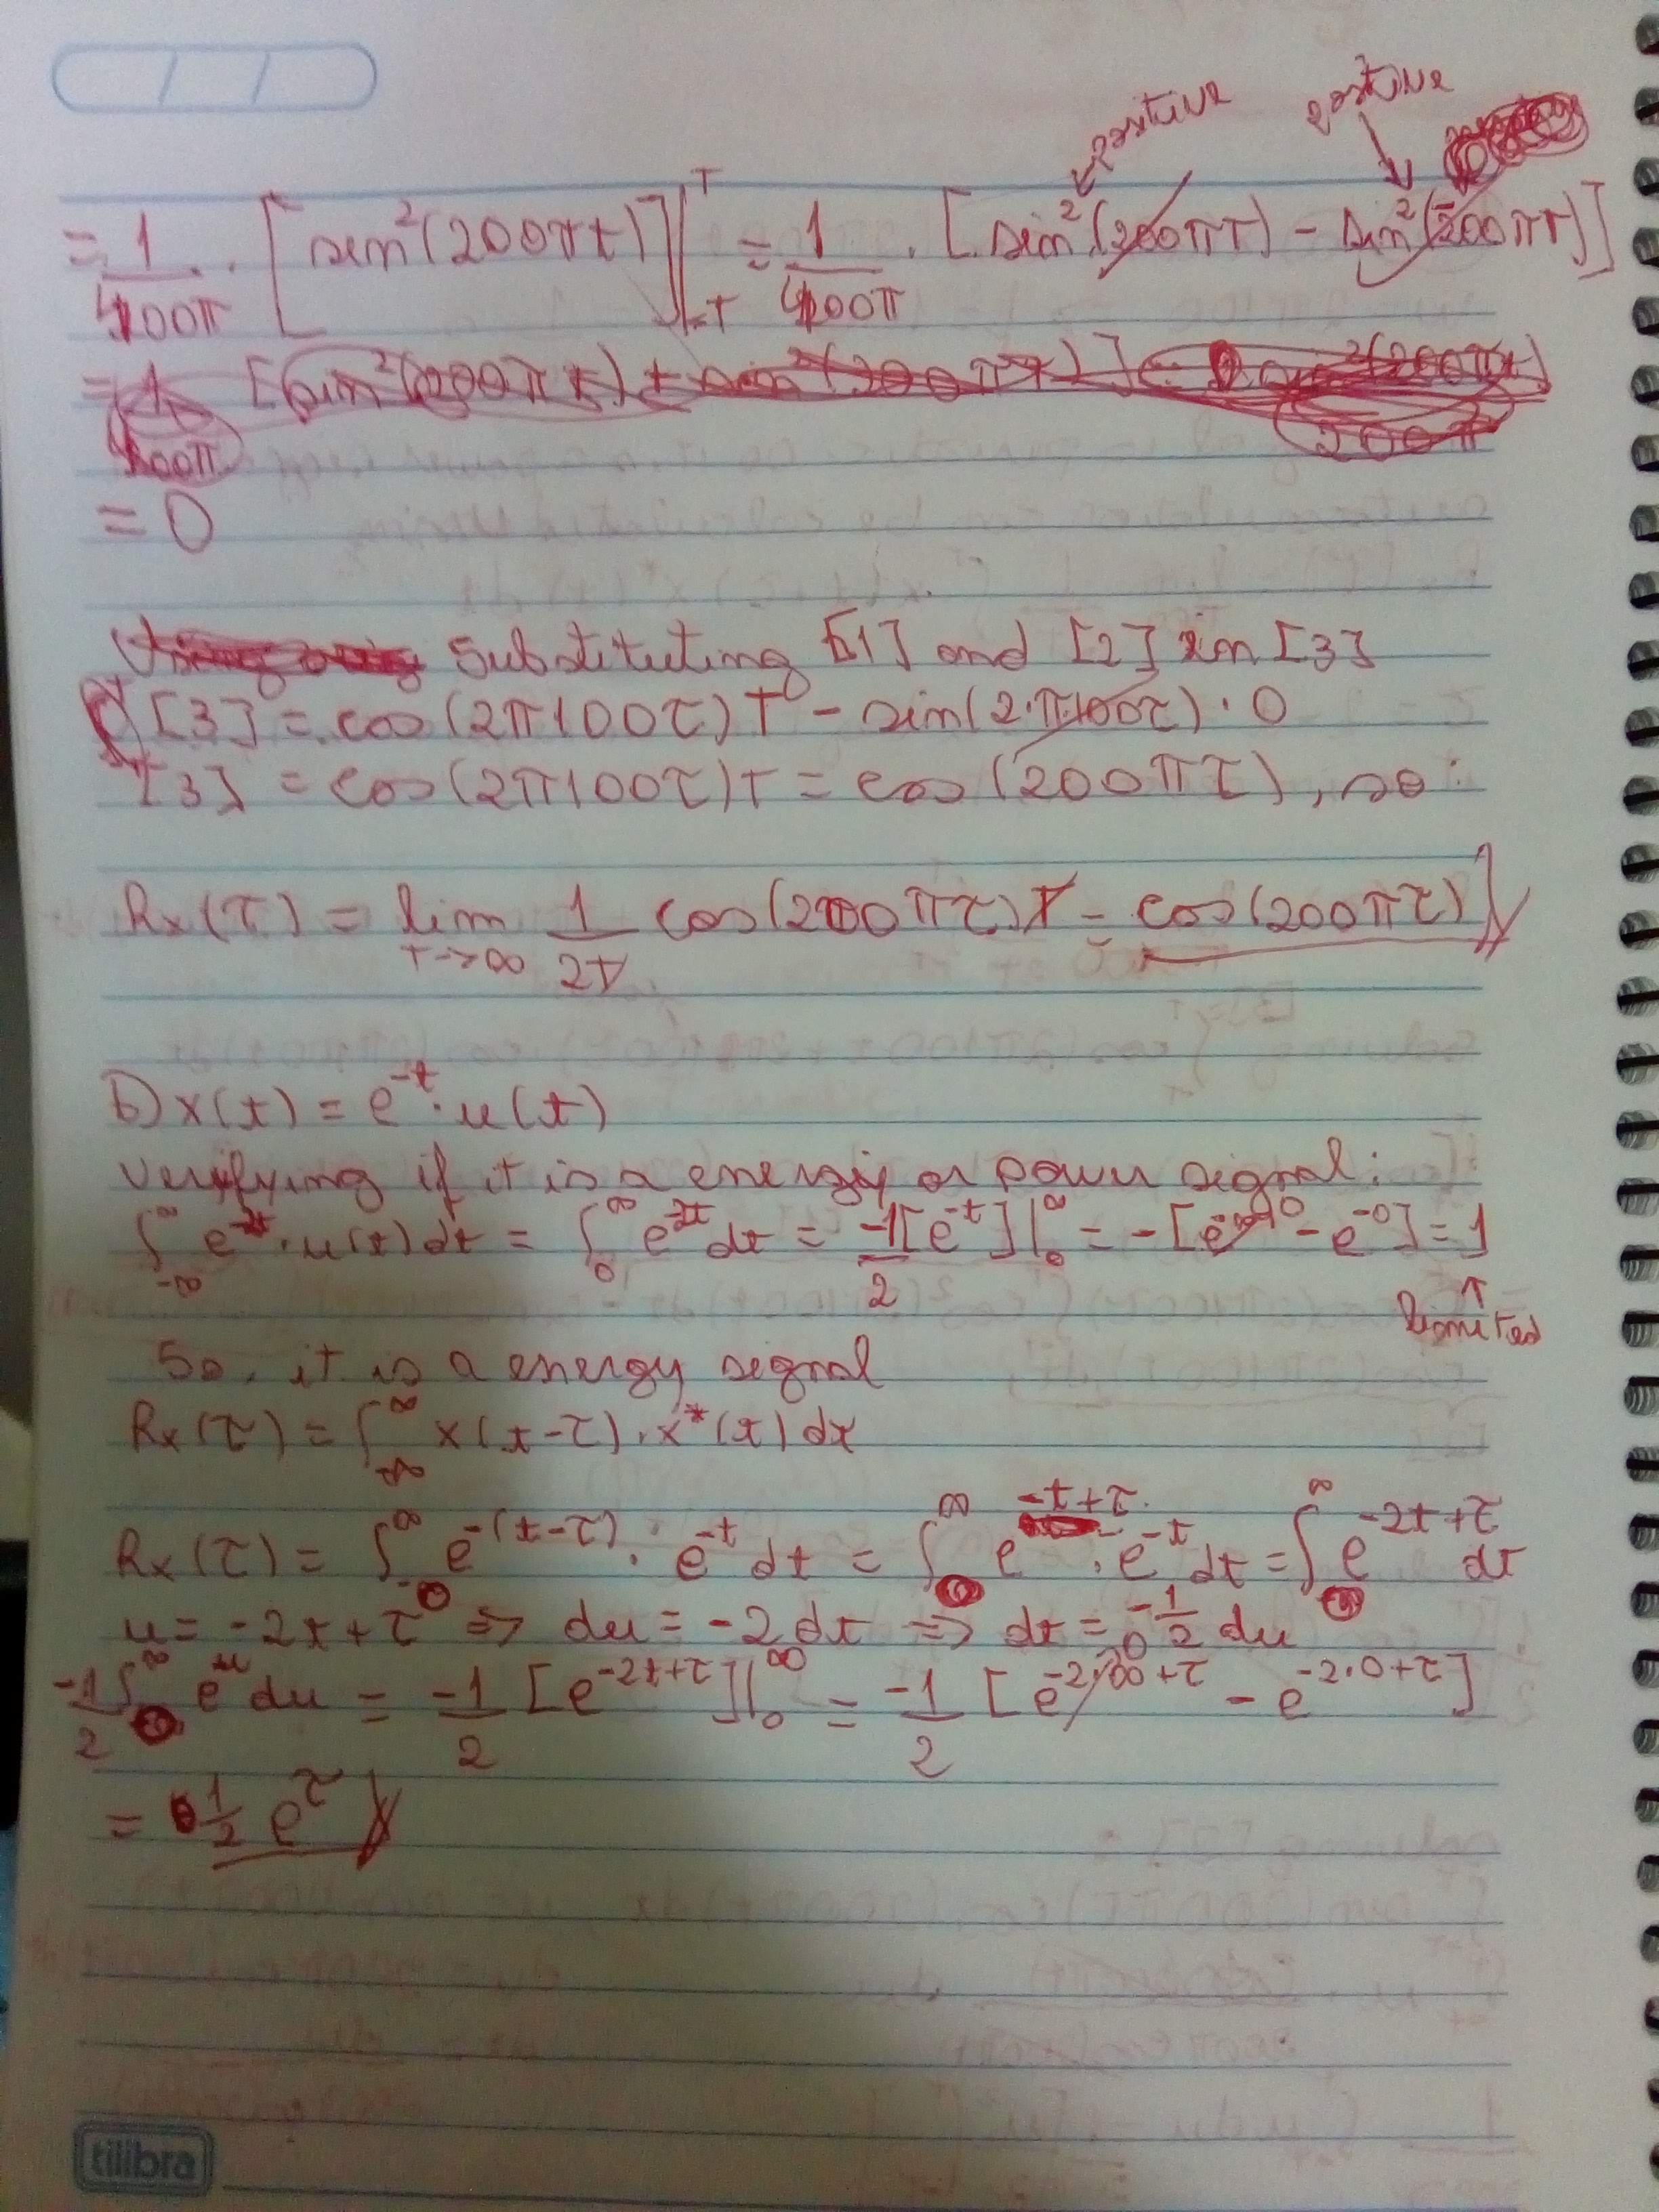 positive positive
= 1/400π · [sin²(200πt)]|_{-T}^{T} = 1/400π · [sin²(200πT) - sin²(-200πT)]
= 1/400π [sin²(200πt) + sin²(200πt)] = sin²(200πt)/200π
= 0
Substituting [1] and [2] in [3]
[3] = cos(2π100τ)T - sin(2·π·100τ)·0
[3] = cos(2π100τ)T = cos(200πτ), so:
Rx(τ) = lim_{T->∞} 1/2T cos(200πτ)T = cos(200πτ)
b) x(t) = e^{-t}·u(t)
Verifying if it is a energy or power signal:
∫_{-∞}^{∞} e^{-2t}·u(t)dt = ∫_{0}^{∞} e^{-2t}dt = -1/2[e^{-t}]|_{0}^{∞} = -[e^{-∞}⁰ - e^{-0}] = 1
↑
limited
So, it is a energy signal
Rx(τ) = ∫_{-∞}^{∞} x(t-τ)·x*(t)dt
Rx(τ) = ∫_{0}^{∞} e^{-(t-τ)}·e^{-t}dt = ∫_{0}^{∞} e^{-t+τ}·e^{-t}dt = ∫_{0}^{∞} e^{-2t+τ}dt
u = -2t+τ => du = -2dt => dt = -1/2 du
-1/2 ∫_{0}^{∞} e^{u}du = -1/2 [e^{-2t+τ}]|_{0}^{∞} = -1/2 [e^{-2·∞+τ}⁰ - e^{-2·0+τ}]
= 1/2 e^{τ}
tilibra